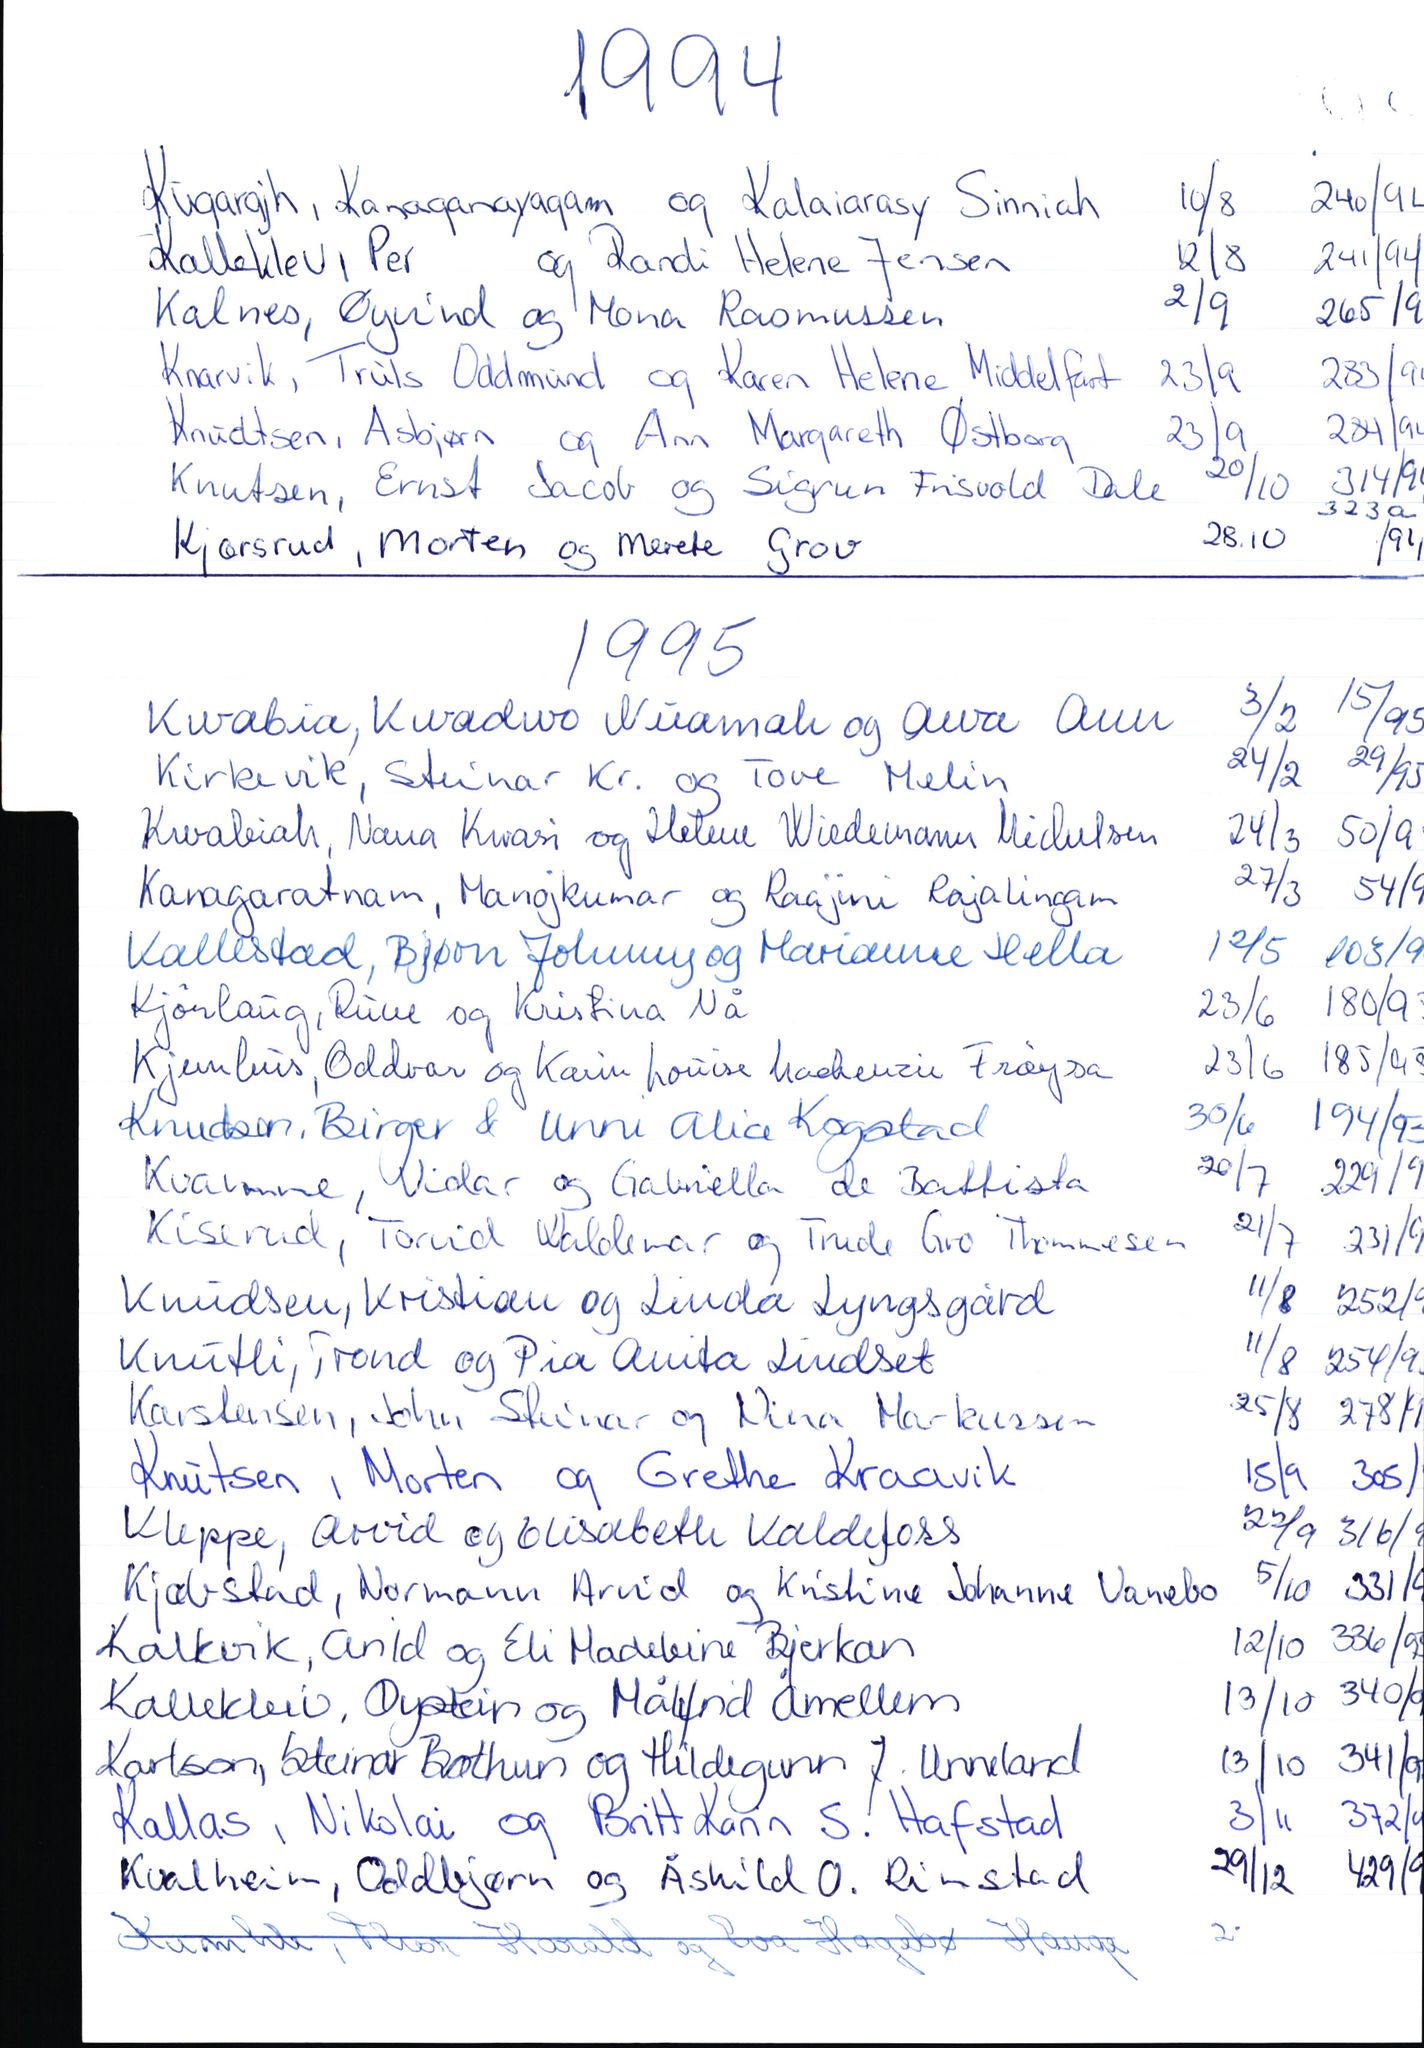 1994
Kugarajh, Kanaganayagam og Kalaiarasy Sinniah 10/8 240/94
Kalleklev, Per og Randi Helene Jensen 12/8 241/94
Kalnes, Øyvind og Mona Rasmussen 2/9 265/9
Knarvik, Truls Oddmund og Karen Helene Middelfart 23/9 283/94
Knudtsen, Asbjørn og Ann Margareth Østborg 23/9 284/94
Knutsen, Ernst Jacob og Sigrun Frisvold Dale 20/10 314/94
Kjørsrud, Morten og Merete Grov 28.10 323a/94
1995
Kwabia, Kwadwo Nuamah og Awa Ann 3/2 15/95
Kirkevik, Steinar Kr. og Tove Melin 24/2 29/95
Kwabiah, Nana Kwasi og Helene Wiedemann Michelsen 24/3 50/9
Kanagaratnam, Manojkumar og Raajini Rajalingam 27/3 54/9
Kallestad, Bjørn Johnny og Marianne Hella 12/5 103/9
Kjörlaug, Rune og Kristina Nå 23/6 180/95
Kjenhus, Oddvar og Karin Louise Mackenzie Frøysa 23/6 185/95
Knudsen, Birger & Unni Alice Kogstad 30/6 194/95
Kvamme, Vidar og Gabriella de Battista 20/7 229/9
Kiserud, Torvid Waldemar og Trude Gro Thommesen 21/7 231/9
Knudsen, Kristian og Linda Lyngsgård 11/8 252/9
Knutli, Trond og Pia Anita Lindset 11/8 254/9
Karstensen, John Steinar og Nina Markussen 25/8 278/9
Knutsen, Morten og Grethe Kraavik 15/9 305/
Kleppe, Arvid og Elisabeth Kaldefoss 22/9 316/9
Kjøbstad, Normann Arvid og Kristine Johanne Vanebo 5/10 331/9
Kalkvik, Arild og Eli Madeleine Bjerkan 12/10 336/95
Kallekleiv, Øystein og Målfrid Åmellem 13/10 340/9
Karlson, Steinar Bothun og Hildegunn J. Unneland 13/10 341/9
Kallas, Nikolai og Britt Karin S. Hafstad 3/11 372/9
Kvalheim, Oddbjørn og Åshild O. Rimstad 29/12 429/9
Kumble, Thor Harald og Eva Hagebø Hauge 2.